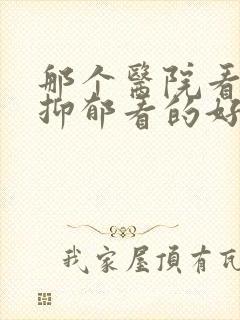 那个醫院看
抑郁看的好
我家屋頂有瓦